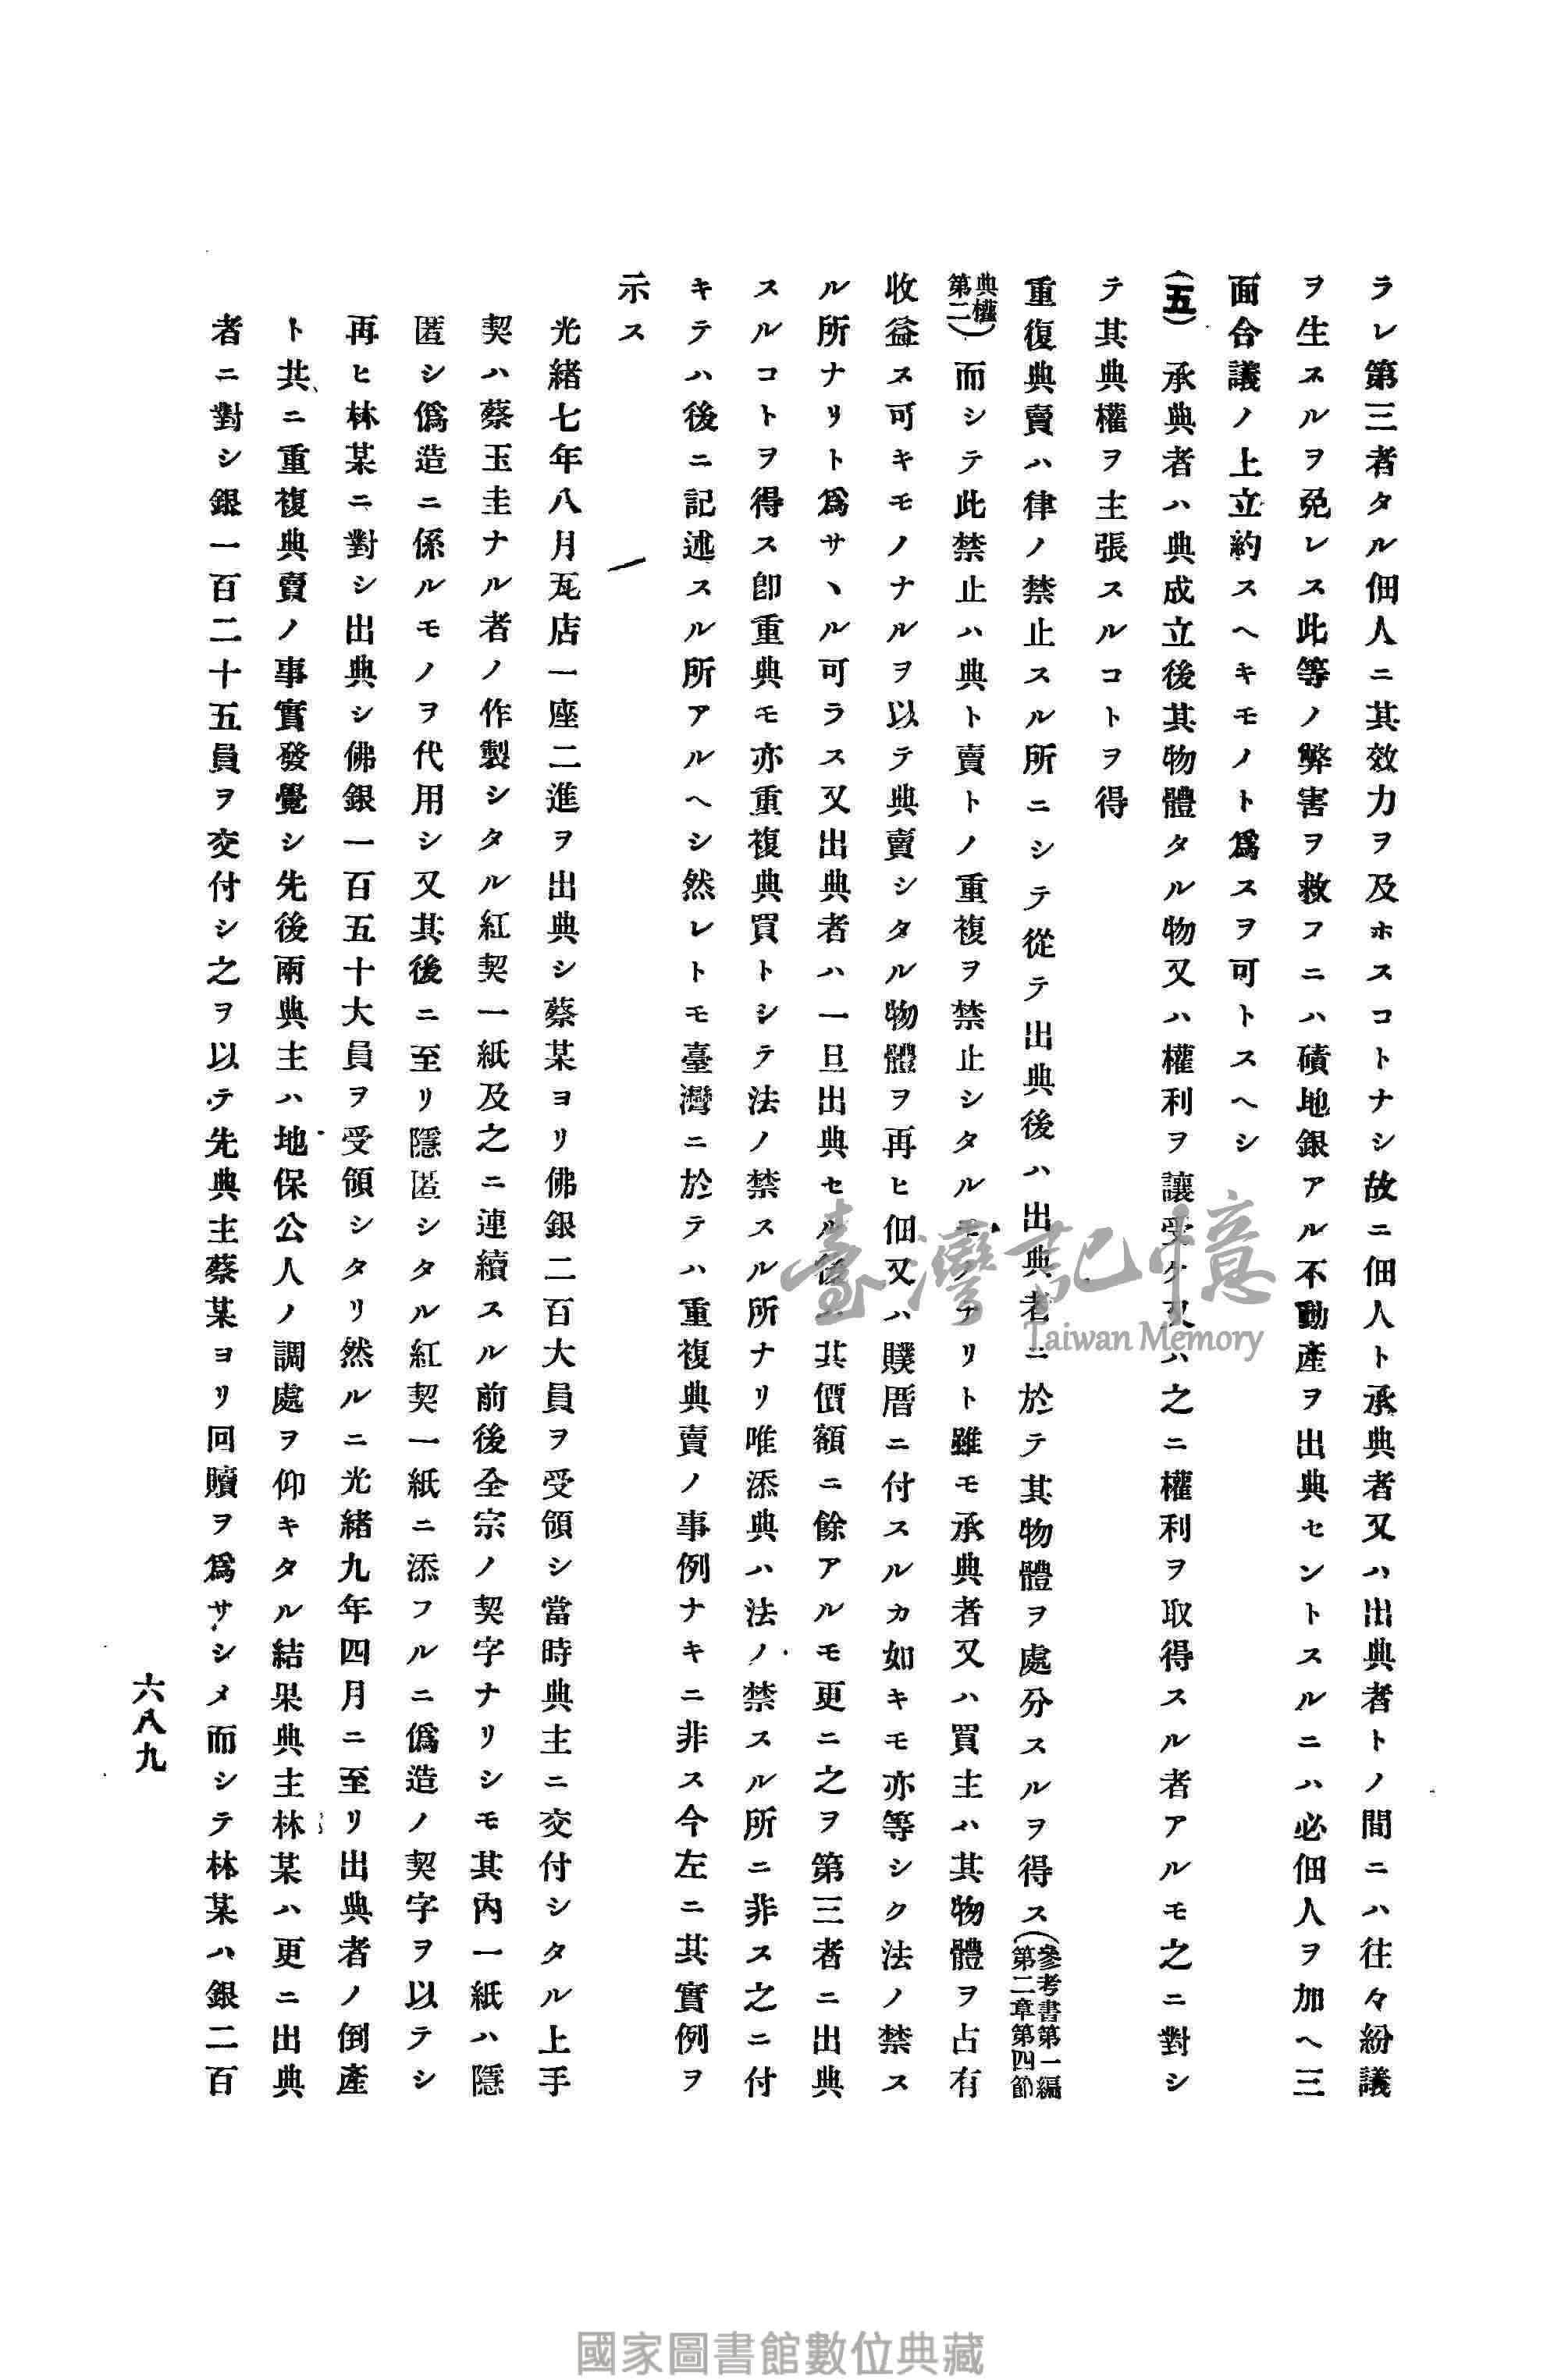 ラレ第三者タル佃人ニ其效力ヲ及ホスコトナシ故ニ佃人ト承典者又ハ出典者トノ間ニハ往々紛議
ヲ生スルヲ免レス此等ノ弊害ヲ救フニハ磧地銀アル不動產ヲ出典セントスルニハ必佃人ヲ加ヘ三
面合議ノ上立約スヘキモノト爲スヲ可トスヘシ
(五) 承典者ハ典成立後其物體タル物又ハ權利ヲ讓受ケ又ハ之ニ權利ヲ取得スル者アルモ之ニ對シ
テ其典權ヲ主張スルコトヲ得
重復典賣ハ律ノ禁止スル所ニシテ從テ出典後ハ出典者ニ於テ其物體ヲ處分スルヲ得ス(參考書第一編第二章第四節
典權第二)而シテ此禁止ハ典ト賣トノ重複ヲ禁止シタルモノナリト雖モ承典者又ハ買主ハ其物體ヲ占有
收益ス可キモノナルヲ以テ典賣シタル物體ヲ再ヒ佃又ハ贌厝ニ付スルカ如キモ亦等シク法ノ禁ス
ル所ナリト爲サヽル可ラス又出典者ハ一旦出典セル後ハ其價額ニ餘アルモ更ニ之ヲ第三者ニ出典
スルコトヲ得ス卽重典モ亦重複典買トシテ法ノ禁スル所ナリ唯添典ハ法ノ禁スル所ニ非ス之ニ付
キテハ後ニ記述スル所アルヘシ然レトモ臺灣ニ於テハ重複典賣ノ事例ナキニ非ス今左ニ其實例ヲ
示ス
一
光緒七年八月瓦店一座二進ヲ出典シ蔡某ヨリ佛銀二百大員ヲ受領シ當時典主ニ交付シタル上手
契ハ蔡玉圭ナル者ノ作製シタル紅契一紙及之ニ連續スル前後全宗ノ契字ナリシモ其內一紙ハ隱
匿シ僞造ニ係ルモノヲ代用シ又其後ニ至リ隱匿シタル紅契一紙ニ添フルニ僞造ノ契字ヲ以テシ
再ヒ林某ニ對シ出典シ佛銀一百五十大員ヲ受領シタリ然ルニ光緒九年四月ニ至リ出典者ノ倒產
ト共ニ重複典賣ノ事實發覺シ先後兩典主ハ地保公人ノ調處ヲ仰キタル結果典主林某ハ更ニ出典
者ニ對シ銀一百二十五員ヲ交付シ之ヲ以テ先典主蔡某ヨリ回贖ヲ爲サシメ而シテ林某ハ銀二百
六八九
臺灣記憶
Taiwan Memory
國家圖書館數位典藏